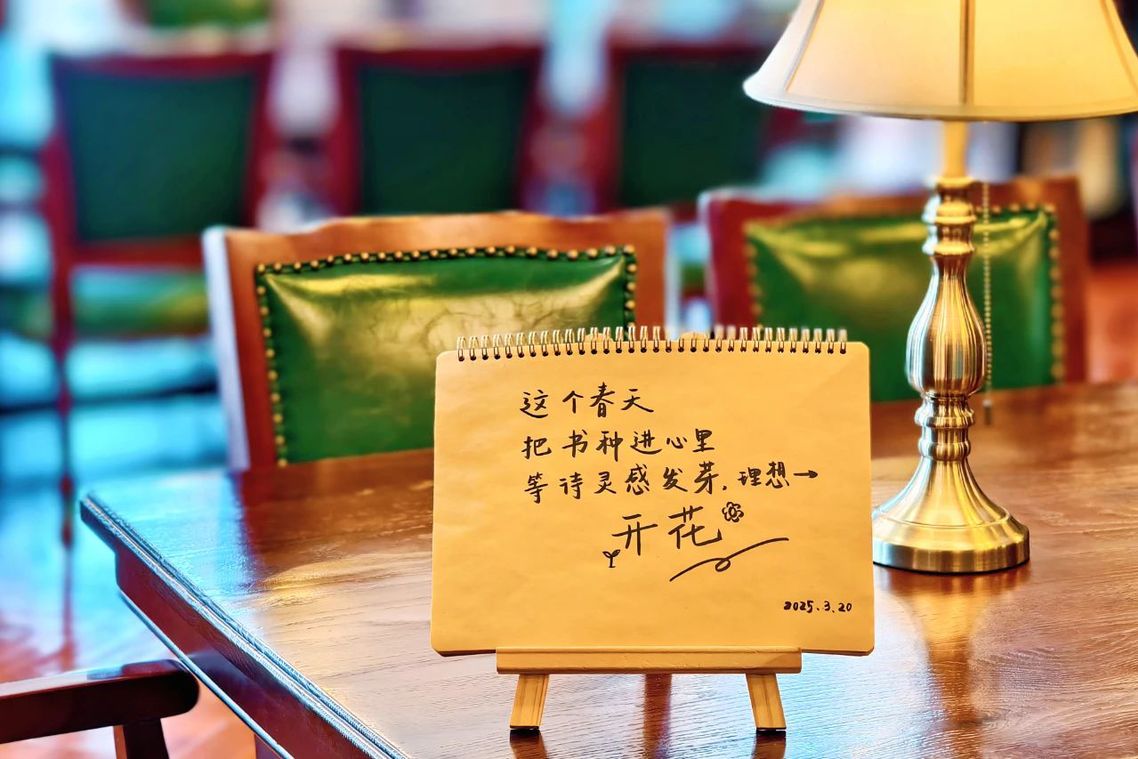 这个春天
把书种进心里
等诗灵感发芽,理想→
开花
2025.3.20